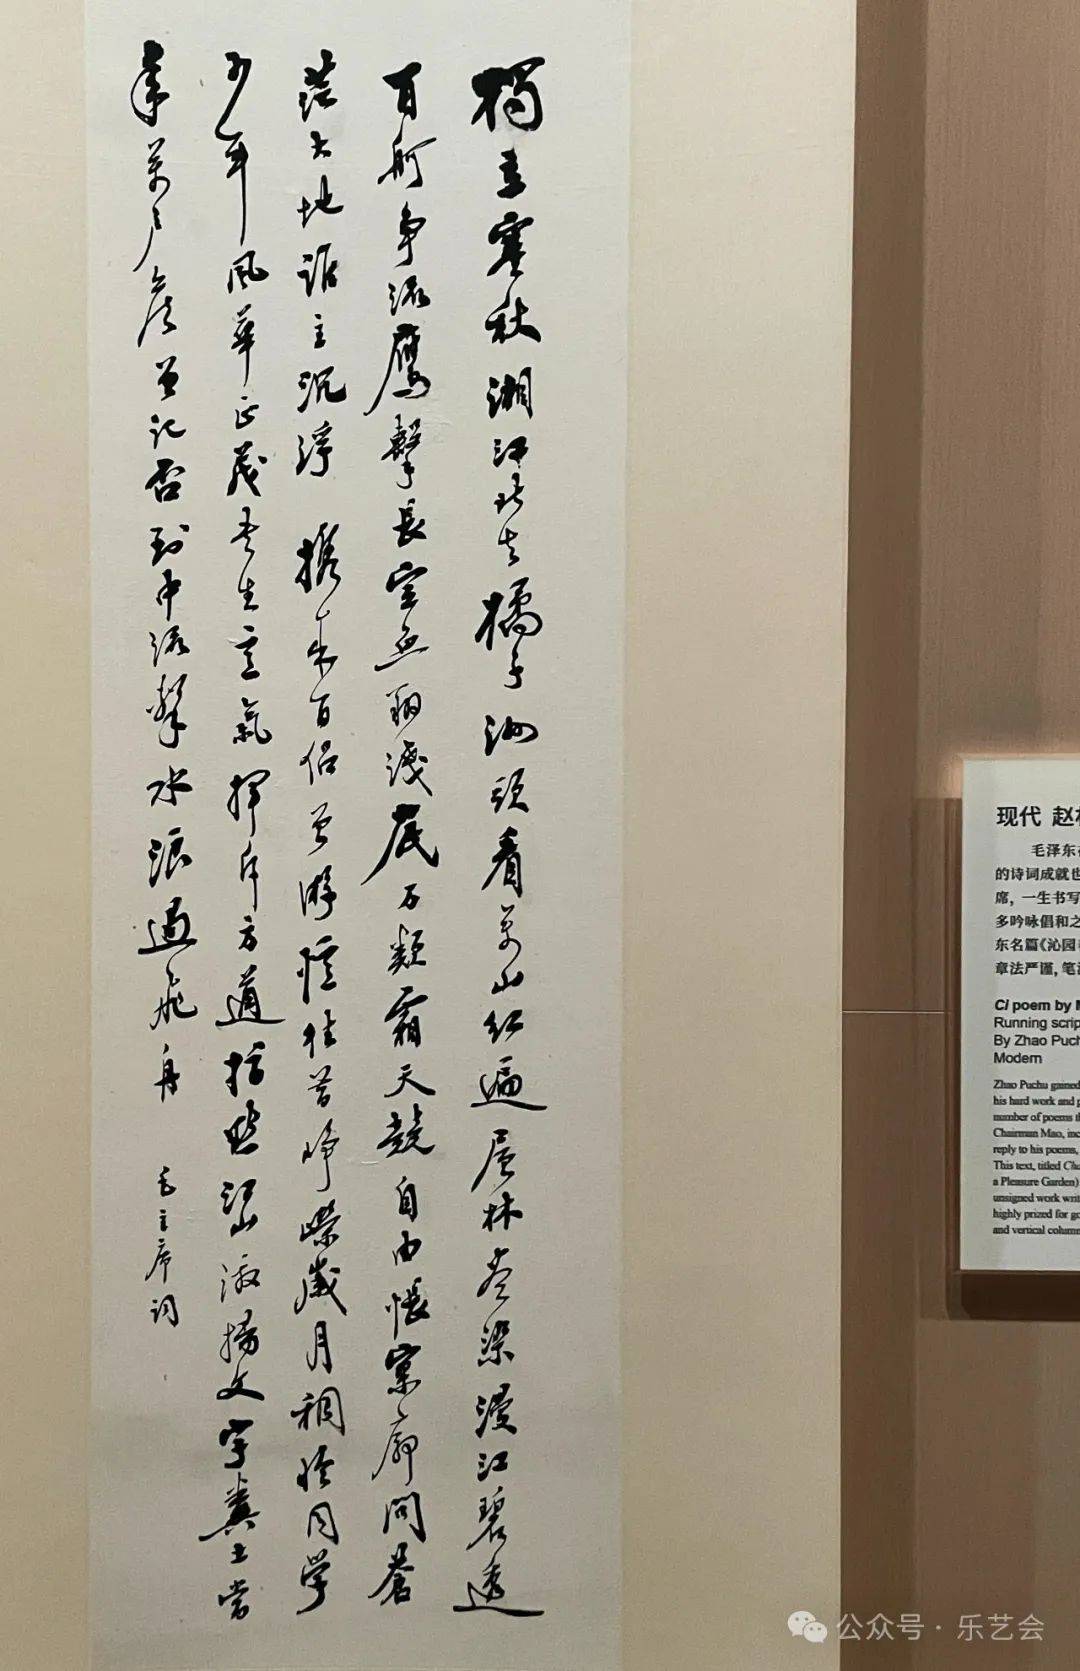 獨立寒秋湘江北去橘子洲頭看萬山红遍層林盡染漫江碧透
百舸争流鷹擊長空魚翔淺底万類霜天競自由悵寥廓問蒼
茫大地誰主沉浮 携来百侣曾游憶往昔崢嶸歲月稠恰同學
少年風華正茂書生意氣揮斥方遒指點江山激揚文字糞土當
年萬户侯曾記否到中流擊水浪遏飛舟 毛主席詞
现代 赵
毛泽东
的诗词成就也
席，一生书写
多吟咏倡和之
东名篇《沁园
章法严谨，笔
Ci poem by
Running scrip
By Zhao Puch
Modern
Zhao Puchu gained
his hard work and
number of poems
Chairman Mao, inc
reply to his poems,
This text, titled
a Pleasure Garden)
unsigned work writ
highly prized for
and vertical colum
公众号 · 乐艺会